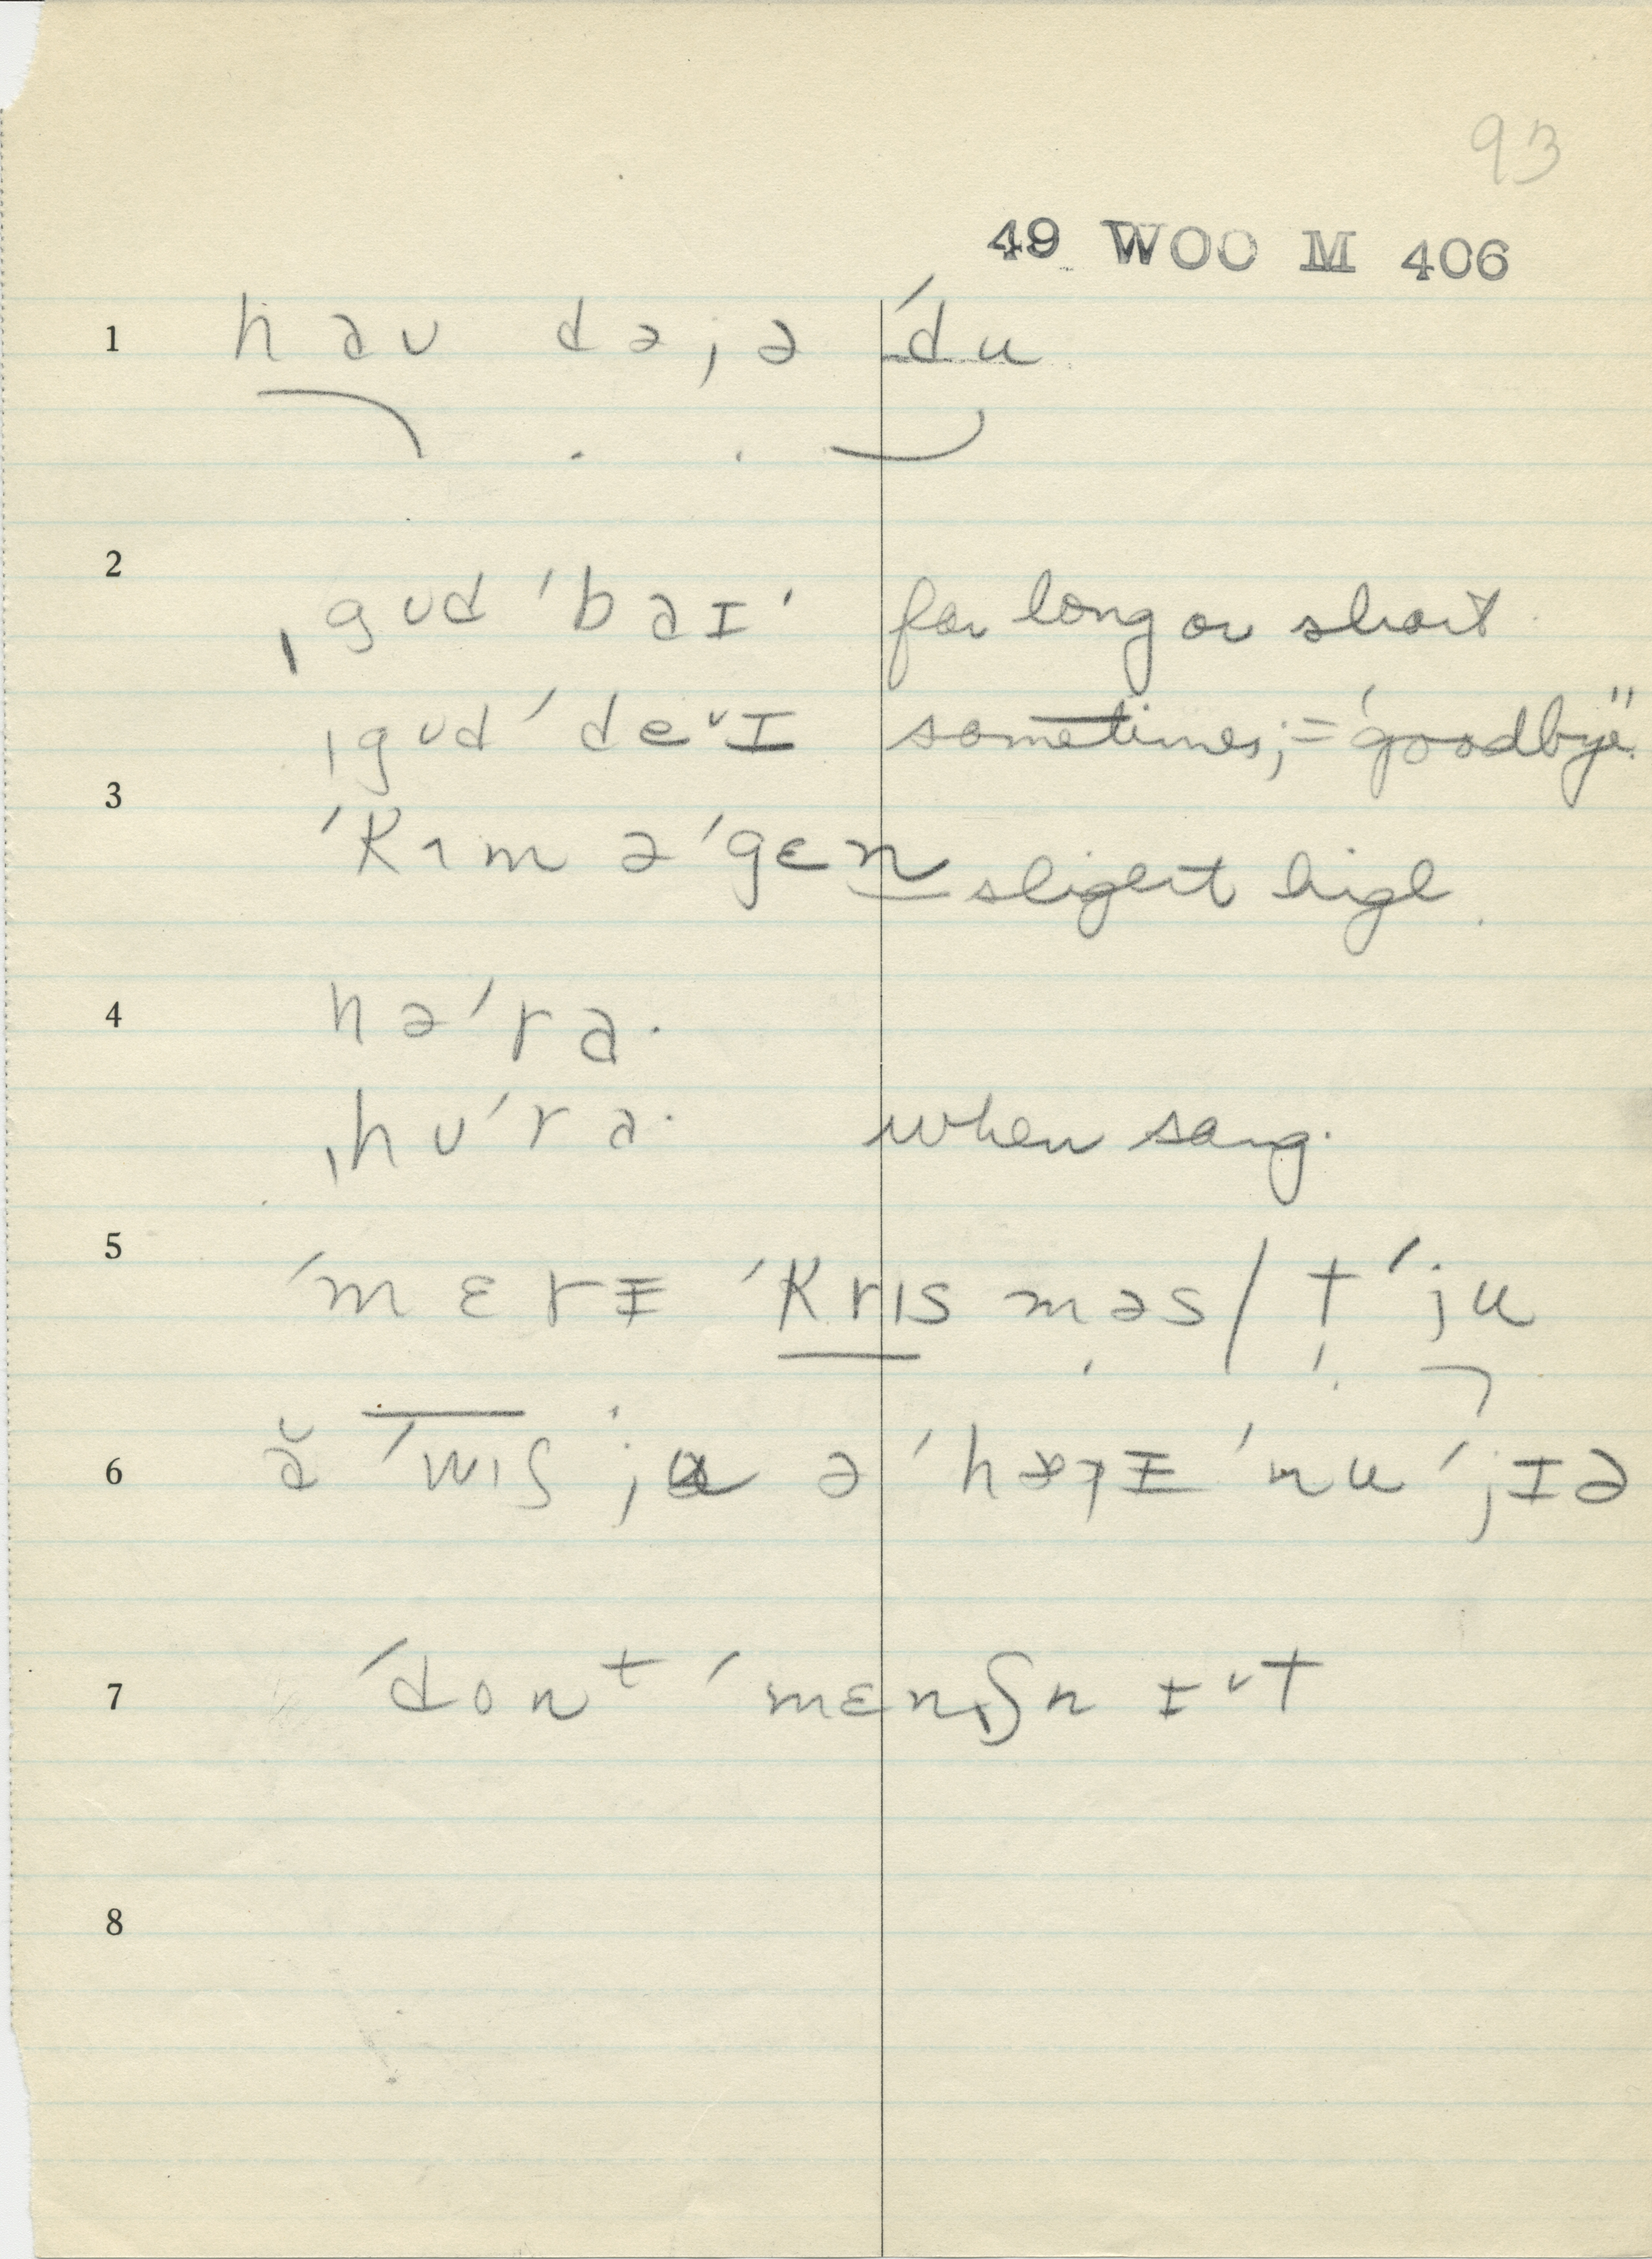 93
49 WOO M 406
1 haʊ də jə ˈdu
2 ˌgʊd ˈbaɪˑ for long or short
ˌgʊd ˈdeˇɪ sometimes; = "goodbye".
3 ˈkɪm əˈgɛn slight higl
4 həˈraˑ
ˌhʊˈraˑ when sang.
5 ˈmɛrɪ ˈkrɪsməs / tˈju
6 ă ˈwɪʃ ju əˈhæpɪ ˈnuˈjɪə
7 ˈdonᵗ ˈmɛnʃn ɪˇt
8